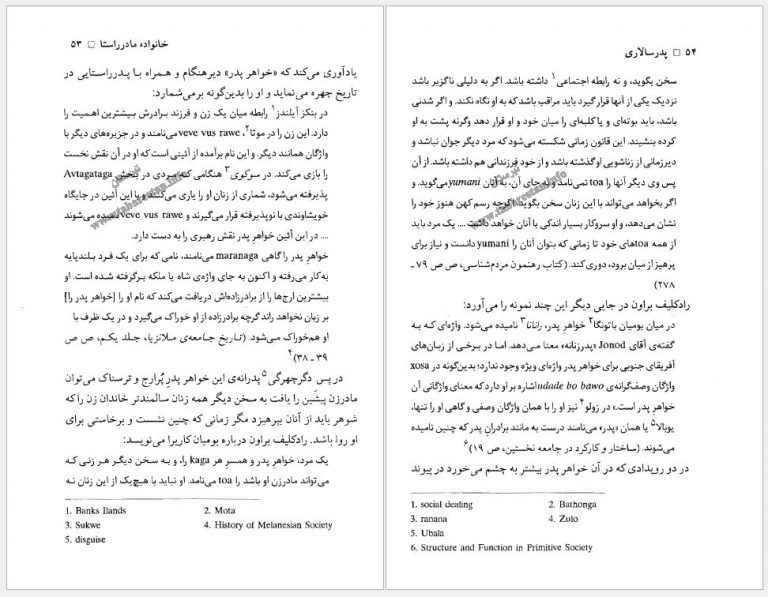 خانواده مادرراستا □ ۵۳
یادآوری می‌کند که «خواهر پدر» دیرهنگام و همراه با پدرراستایی در
تاریخ چهره می‌نماید و او را بدین‌گونه برمی‌شمارد:
در بنکز آیلندز۱ رابطه میان یک زن و فرزند برادرش بیشترین اهمیت را
دارد. این زن را در موتا۲، veve vus rawe می‌نامند و در جزیره‌های دیگر با
واژگان همانند دیگر. و این نام برآمده از آئینی است که او در آن نقش نخست
را بازی می‌کند. در سوکوی۳ هنگامی که مردی در بخش Avtagataga
پذیرفته می‌شود، شماری از زنان او را یاری می‌کنند و با این آئین در جایگاه
خویشاوندی با نوپذیرفته قرار می‌گیرند و veve vus rawe نامیده می‌شوند
.... در این آئین خواهر پدر نقش رهبری را به دست دارد.
خواهر پدر را گاهی maranaga می‌نامند، نامی که برای یک فرد بلندپایه
به‌کار می‌رفته و اکنون به جای واژه‌ی شاه یا ملکه برگرفته شده است. او
بیشترین ارج‌ها را از برادرزاده‌اش دریافت می‌کند که نام او را [خواهر پدر را]
بر زبان نخواهد راند گرچه برادرزاده از او خوراک می‌گیرد و در یک ظرف با
او هم‌خوراک می‌شود. (تاریخ جامعه‌ی ملانزیا، جلد یکم، ص ص
۳۹ ـ ۳۸)۴
در پس دگرچهرگی۵ پدرانه‌ی این خواهر پدرِ پُرارج و ترسناک می‌توان
مادرزن پیشین را یافت به سخن دیگر همه زنان سالمندتر خاندان زن را که
شوهر باید از آنان بپرهیزد مگر زمانی که چنین نشست و برخاستی برای
او روا باشد. رادکلیف براون درباره بومیان کاریرا می‌نویسد:
یک مرد، خواهر پدر و همسر هر kaga را، و به سخن دیگر هر زنی که
می‌تواند مادرزن او باشد را toa می‌نامد. او نباید با هیچ‌یک از این زنان نه
1. Banks Ilands
2. Mota
3. Sukwe
4. History of Melanesian Society
5. disguise
۵۴ □ پدرسالاری
سخن بگوید، و نه رابطه اجتماعی۱ داشته باشد. اگر به دلیلی ناگزیر باشد
نزدیک یکی از آنها قرار گیرد باید مراقب باشد که به او نگاه نکند. و اگر شدنی
باشد، باید بوته‌ای و یا کلبه‌ای را میان خود و او قرار دهد وگرنه پشت به او
کرده بنشیند. این قانون زمانی شکسته می‌شود که مرد دیگر جوان نباشد و
دیرزمانی از زناشویی او گذشته باشد و از خود فرزندانی هم داشته باشد. از آن
پس وی دیگر آنها را toa نمی‌نامد و به جای آن، به آنان yumani می‌گوید. و
اگر بخواهد می‌تواند با این زنان سخن بگوید. اگرچه رسم کهن هنوز خود را
نشان می‌دهد، و او سروکار بسیار اندکی با آنان خواهد داشت .... یک مرد باید
از همه toaهای خود تا زمانی که بتوان آنان را yumani دانست و نیاز برای
پرهیز از میان برود، دوری کند. (کتاب رهنمون مردم‌شناسی، ص ص ۷۹ ـ
۲۷۸)
رادکلیف براون در جایی دیگر این چند نمونه را می‌آورد:
در میان بومیان باتونگا۲ خواهر پدر، رانانا۳ نامیده می‌شود. واژه‌ای که به
گفته‌ی آقای Jonod «پدرزنانه» معنا می‌دهد. اما در برخی از زبان‌های
آفریقای جنوبی برای خواهر پدر واژه‌ای ویژه وجود ندارد؛ بدین‌گونه در xosa
واژگان وصف‌گرانه‌ی udade bo bawo اشاره بر او دارد که معنای واژگانی آن
خواهرِ پدر است.» در زولو۴ نیز او را با همان واژگان وصفی و گاهی او را تنها،
یوبالا۵ یا همان «پدر» می‌نامند درست به مانند برادرانِ پدر که چنین نامیده
می‌شوند. (ساختار و کارکرد در جامعه نخستین، ص ۱۹)۶
در دو رویدادی که در آن خواهر پدر بیشتر به چشم می‌خورد در پیوند
1. social dealing
2. Bathonga
3. ranana
4. Zulo
5. Ubala
6. Structure and Function in Primitive Society